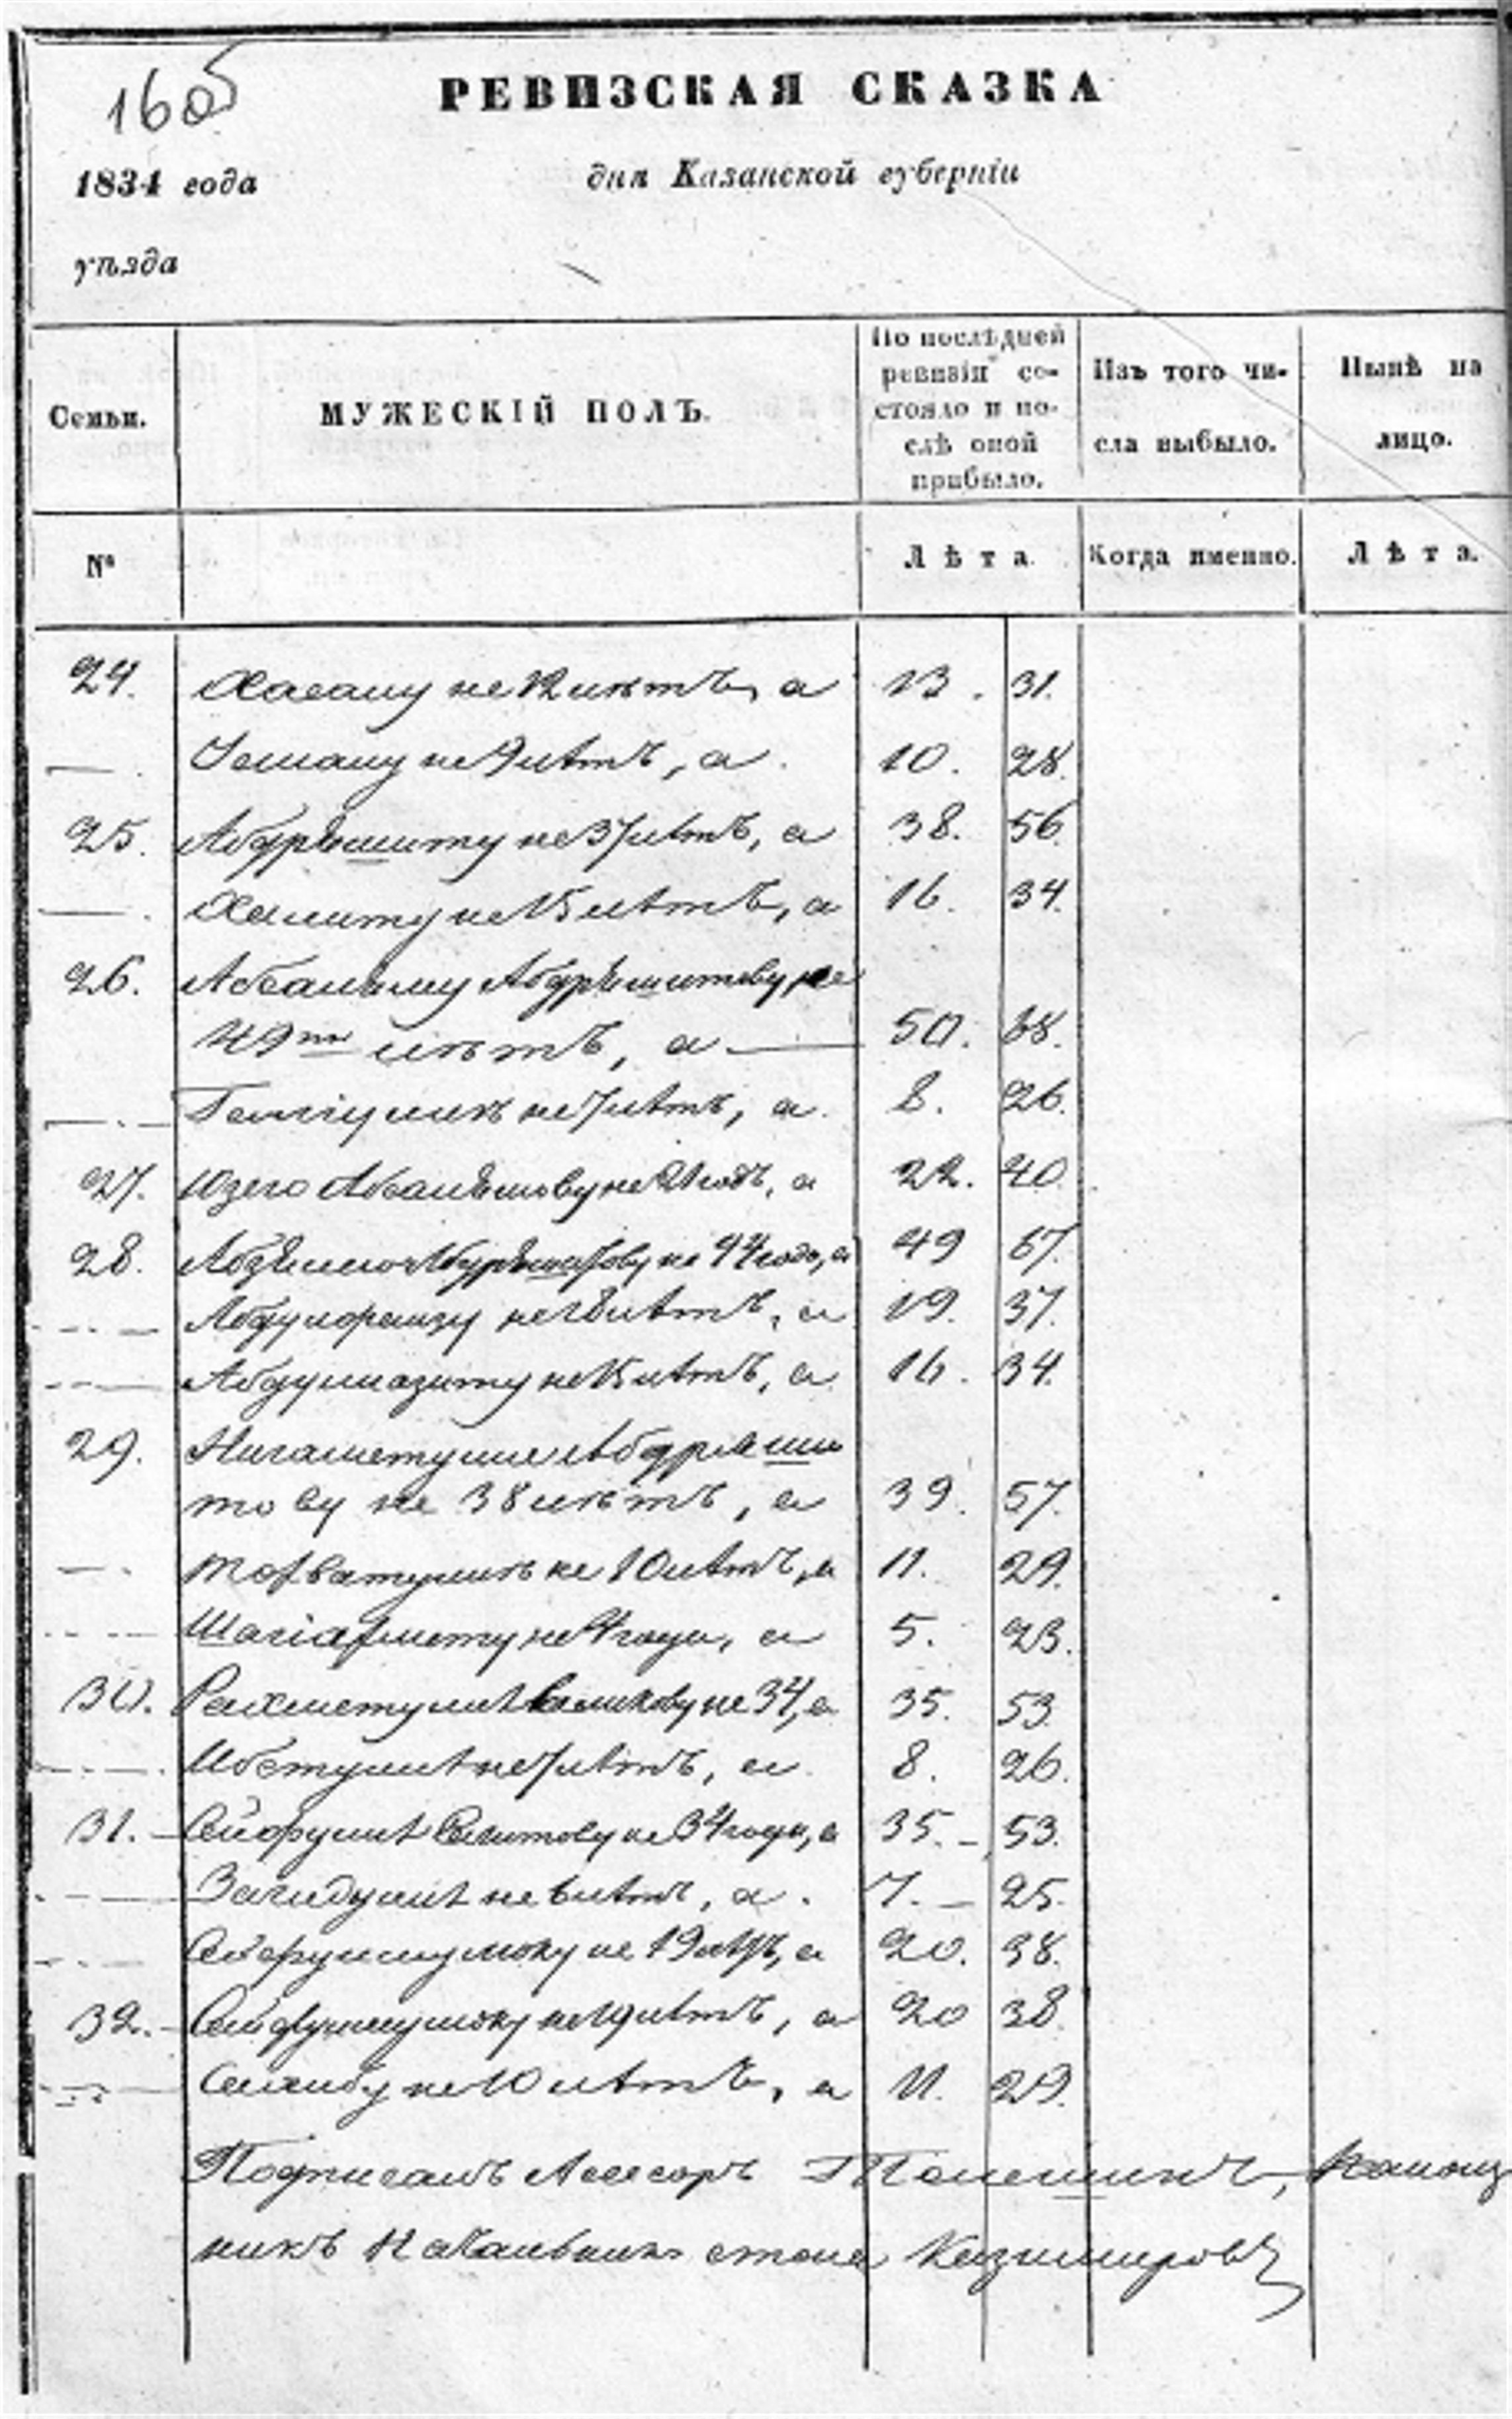 160б
РЕВИЗСКАЯ СКАЗКА
1834 года
дня Казанской губерніи
уѣзда
Семьи.
МУЖЕСКІЙ ПОЛЪ.
По послѣдней ревизіи состояло и послѣ оной прибыло.
Изъ того числа выбыло.
Нынѣ на лицо.
№
Лѣта.
Когда именно.
Лѣта.
24. Хасану не 12 лѣтъ, а 13. 31.
— Усману не 9 лѣтъ, а 10. 28.
25. Абдрѣшиту не 37 лѣтъ, а 38. 56.
— Халиту не 15 лѣтъ, а 16. 34.
26. Абсаляму Абдрѣшитову, не
49ти лѣтъ, а — 50. 68.
— не 7 лѣтъ, а 8. 26.
27. Абсалямову не 21 годъ, а 22. 40.
28. не 44 года, а 49 67.
— Абдулфаизу не 18 лѣтъ, а 19. 37.
— Абдулмазиту не 15 лѣтъ, а 16. 34.
29. Нигаметулле Абдрѣши
тову не 38 лѣтъ, а 39. 57.
— не 10 лѣтъ, а 11. 29.
— Шагіахмету не 4 года, а 5. 23.
30. Рахметуллѣ не 34, а 35. 53.
— не 7 лѣтъ, а 8. 26.
31. Сейфуллѣ не 34 года, а 35. — 53.
— Загидуллѣ не 6 лѣтъ, а 7. — 25.
— Сейфулмулюку не 19 лѣтъ, а 20. 38.
32. Сейфулмулюку не 19 лѣтъ, а 20 38.
— не 10 лѣтъ, а 11. 29.
Подписалъ Асесоръ
никъ стола Казимировъ